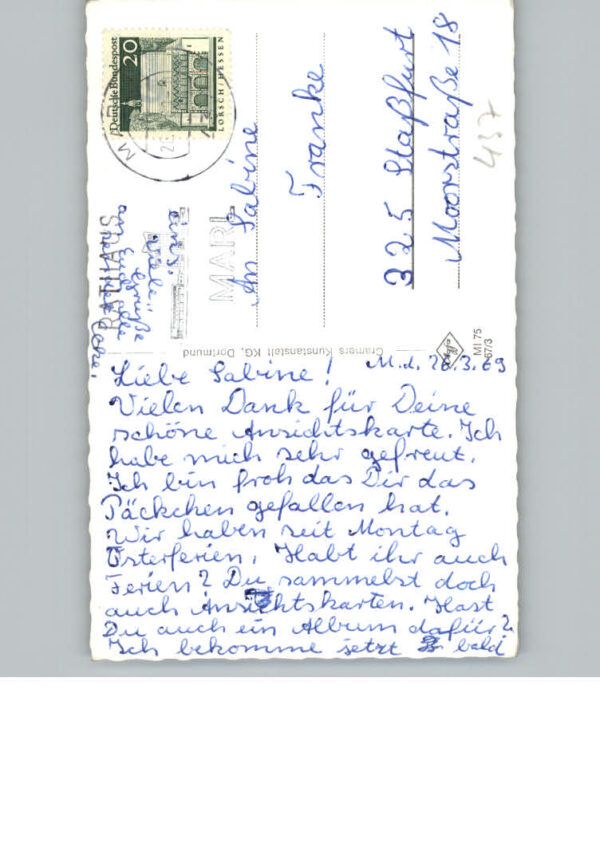 Deutsche Bundespost
20
LORSCH/HESSEN
MARL
RATHAUS
An Sabine
Franke
325 Staßfurt
Moorstraße 18
437
Cramers Kunstanstalt KG, Dortmund
MI 75
67/3
M.d. 26.3.69
Liebe Sabine!
Vielen Dank für Deine
schöne Ansichtskarte. Ich
habe mich sehr gefreut.
Ich bin froh das Dir das
Päckchen gefallen hat.
Wir haben seit Montag
Osterferien. Habt ihr auch
Ferien? Du sammelst doch
auch Ansichtskarten. Hast
Du auch ein Album dafür?
Ich bekomme jetzt bald
eins.
Viele
Grüße
an Euch alle